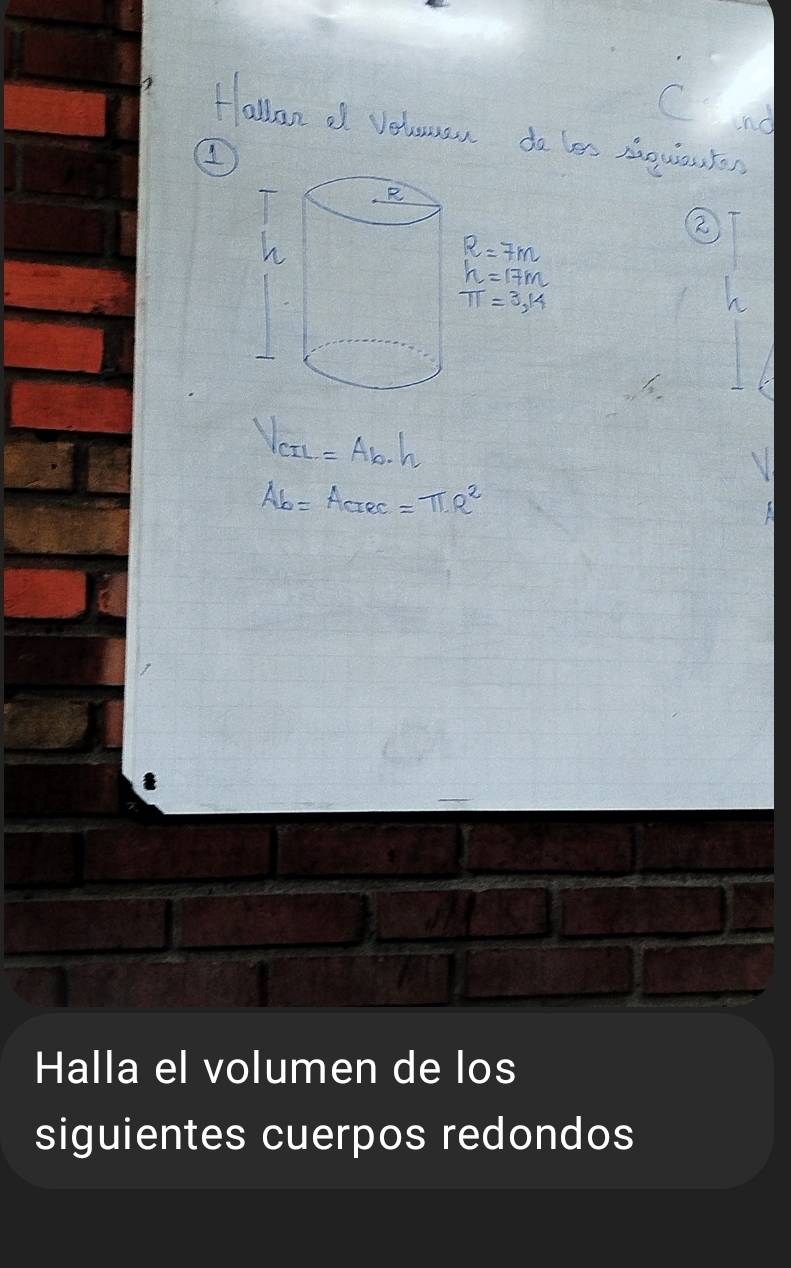 Hallar el Volumen de los siguientes
①
R
h
R = 7m
h = 17m
π = 3,14
②
h
VCIL = Ab.h
Ab = ACIRC = π.R²
Halla el volumen de los
siguientes cuerpos redondos